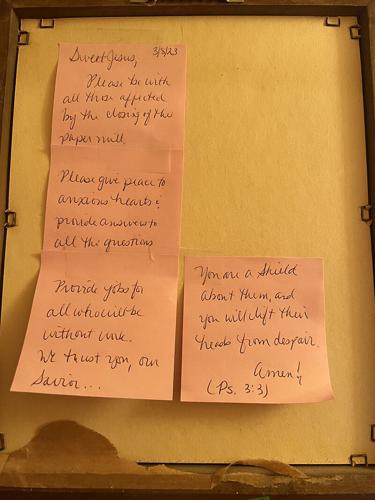 3/8/23
Sweet Jesus,
Please be with
all those affected
by the closing of the
paper mill.
Please give peace to
anxious hearts &
provide answers to
all the questions
Provide jobs for
all who will be
without work.
We trust you, our
Savior...
You are a Shield
about them, and
you will lift their
heads from despair.
Amen!
(Ps. 3:3)